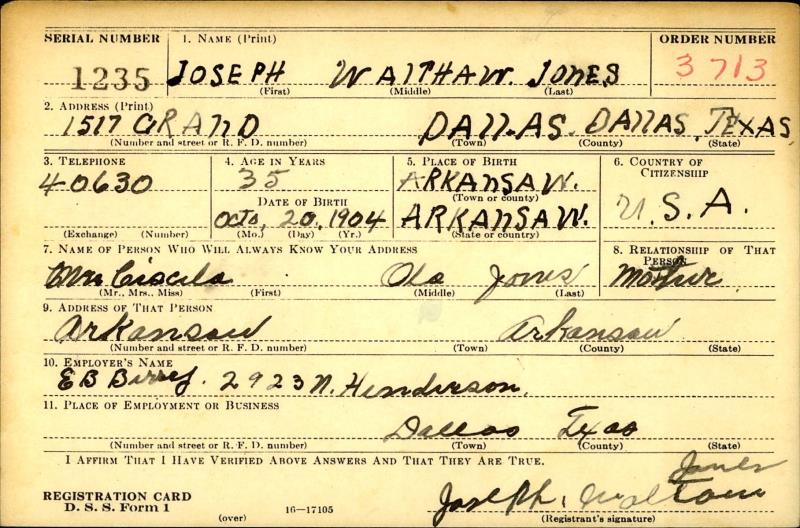 SERIAL NUMBER 1. NAME (Print) ORDER NUMBER
1235 JOSEPH WAITHAW. JONES 3713
(First) (Middle) (Last)
2. ADDRESS (Print)
1517 GRAND DALLAS. DALLAS, TEXAS
(Number and street or R. F. D. number) (Town) (County) (State)
3. TELEPHONE 4. AGE IN YEARS 5. PLACE OF BIRTH 6. COUNTRY OF CITIZENSHIP
40630 35 ARKANSAW.
(Town or county)
DATE OF BIRTH
Octo, 20, 1904 ARKANSAW. U.S.A.
(Exchange) (Number) (Mo.) (Day) (Yr.) (State or country)
7. NAME OF PERSON WHO WILL ALWAYS KNOW YOUR ADDRESS 8. RELATIONSHIP OF THAT PERSON
Mrs Ola Jones Mother
(Mr., Mrs., Miss) (First) (Middle) (Last)
9. ADDRESS OF THAT PERSON
Arkansaw Arkansaw
(Number and street or R. F. D. number) (Town) (County) (State)
10. EMPLOYER'S NAME
E B 2923 N. Henderson.
11. PLACE OF EMPLOYMENT OR BUSINESS
Dallas Texas
(Number and street or R. F. D. number) (Town) (County) (State)
I AFFIRM THAT I HAVE VERIFIED ABOVE ANSWERS AND THAT THEY ARE TRUE.
Jones
REGISTRATION CARD Joseph,
D. S. S. Form 1 (over) 16—17105 (Registrant's signature)